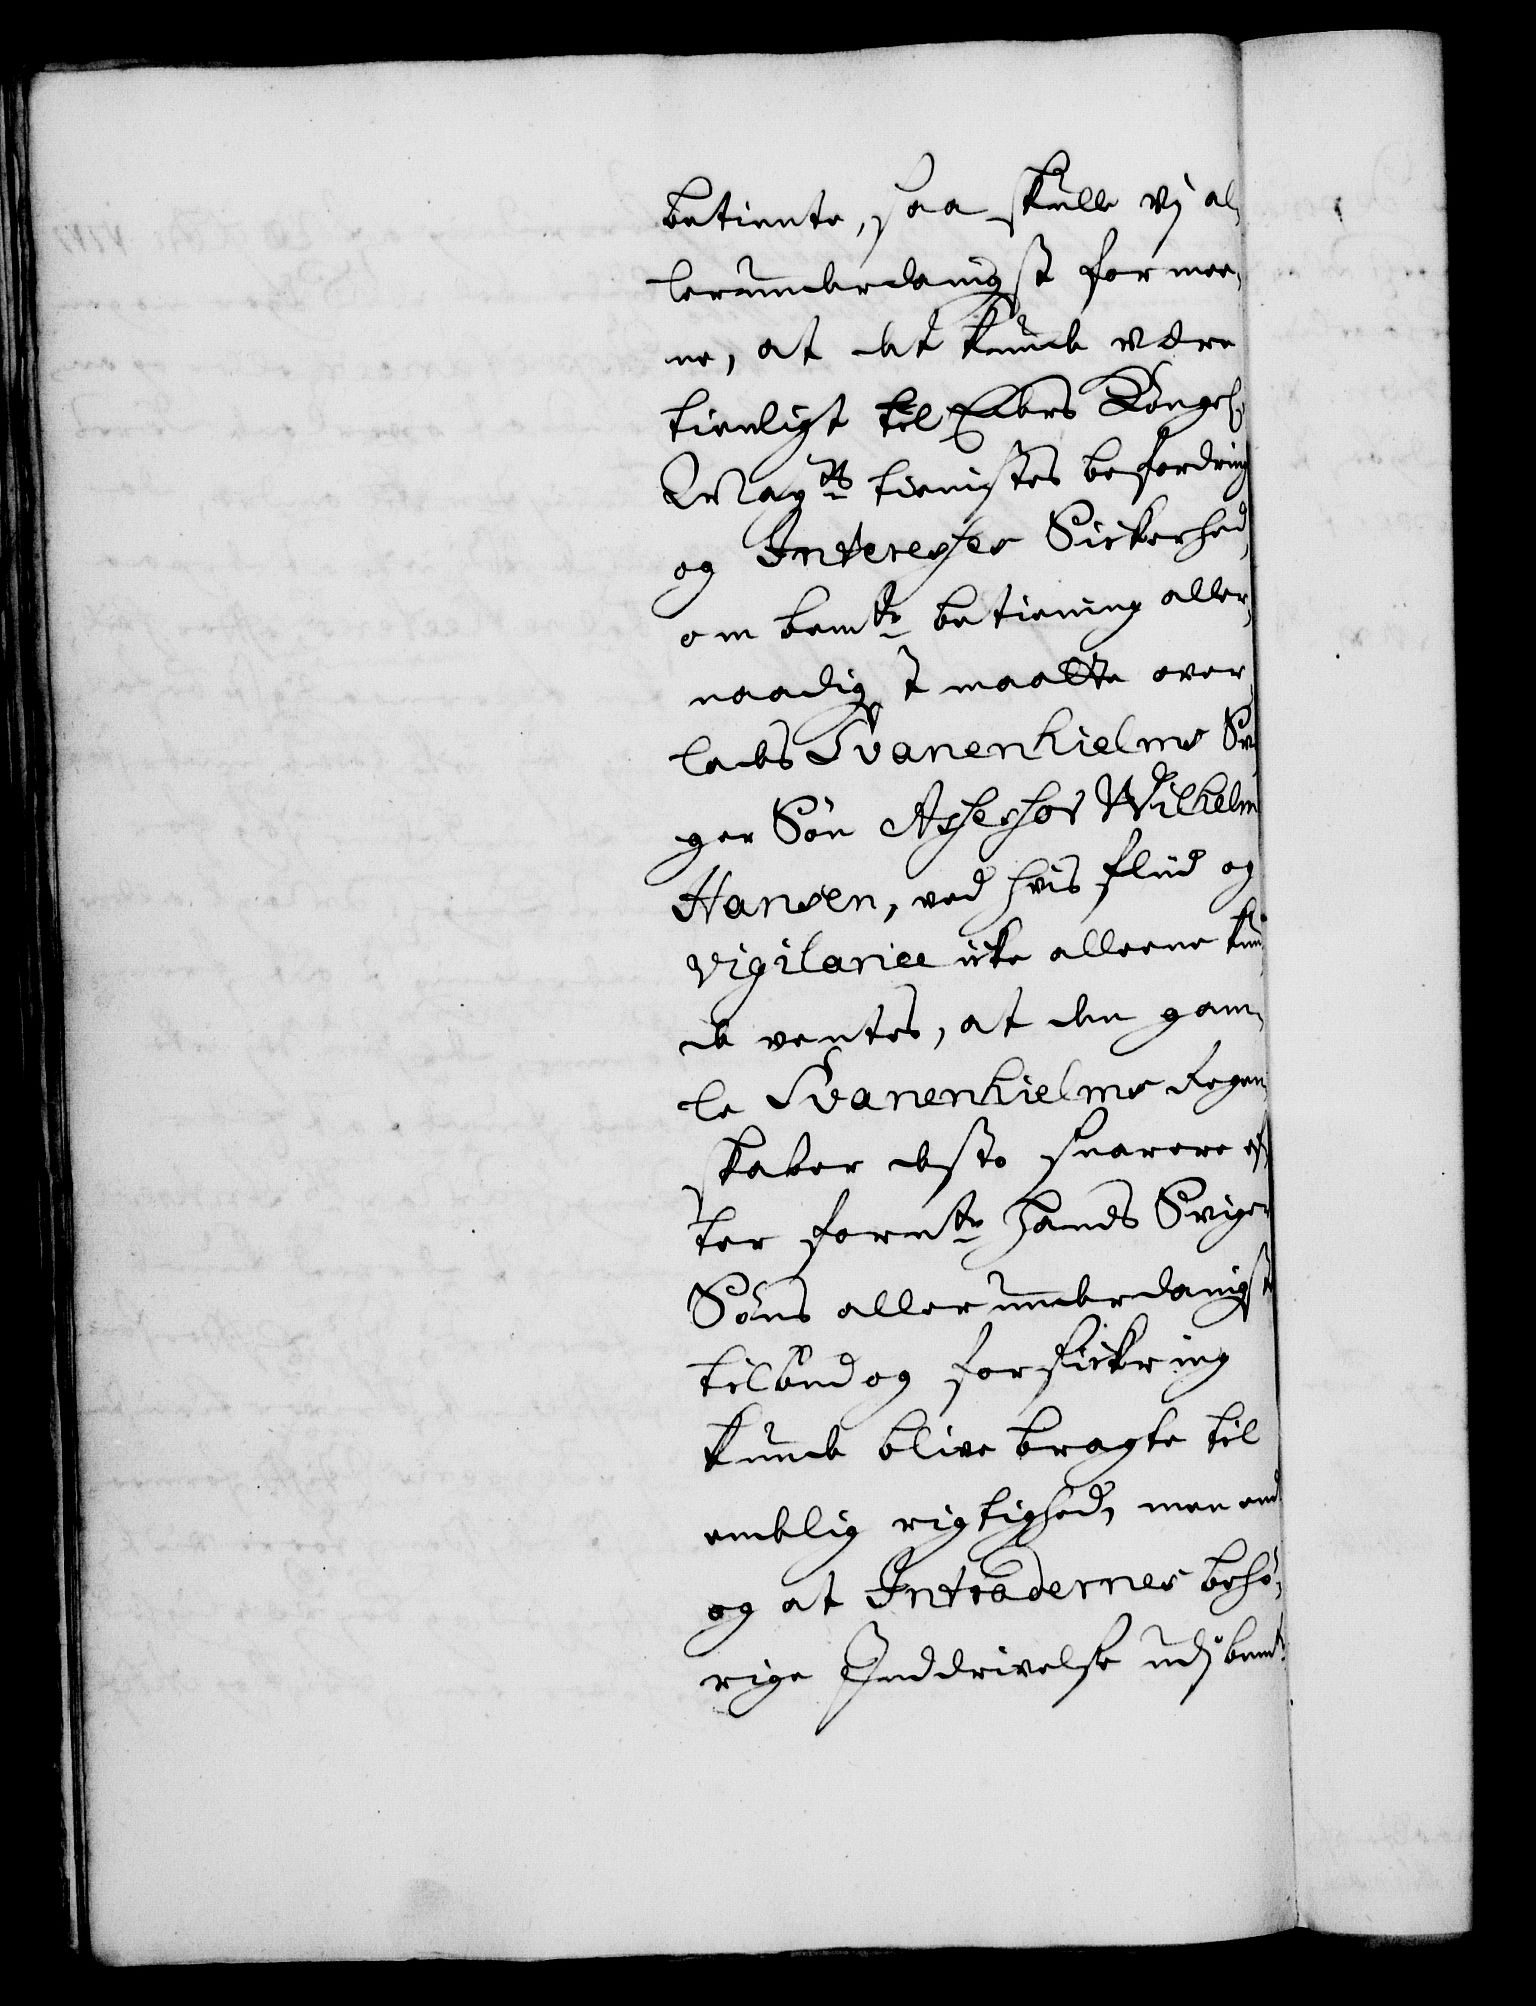 betiente, saa skulle vj al,
lerunderdanigst formee,
ne, at det kunde være
tienligt til Eders Kongel:
Mayts tienistes befordring
og Interesses Sickerhed,
om bemte betiening aller,
naadigst maatte over,
lades Svanenhielms Svi
ger Søn Assessor Wilhelm
Hansen, ved hvis fliid og
vigilance icke alleene kun,
de ventes, at den gam,
le Svanenhielms Regen,
skaber desto snarere ef,
ter fornte hands Sviger
Søns allerunderdanigste
tilbud og forsickring
kunde blive bragte til
endelig rigtighed, men end
og at Intradernes behø,
rige Inddrivelse udj bemte